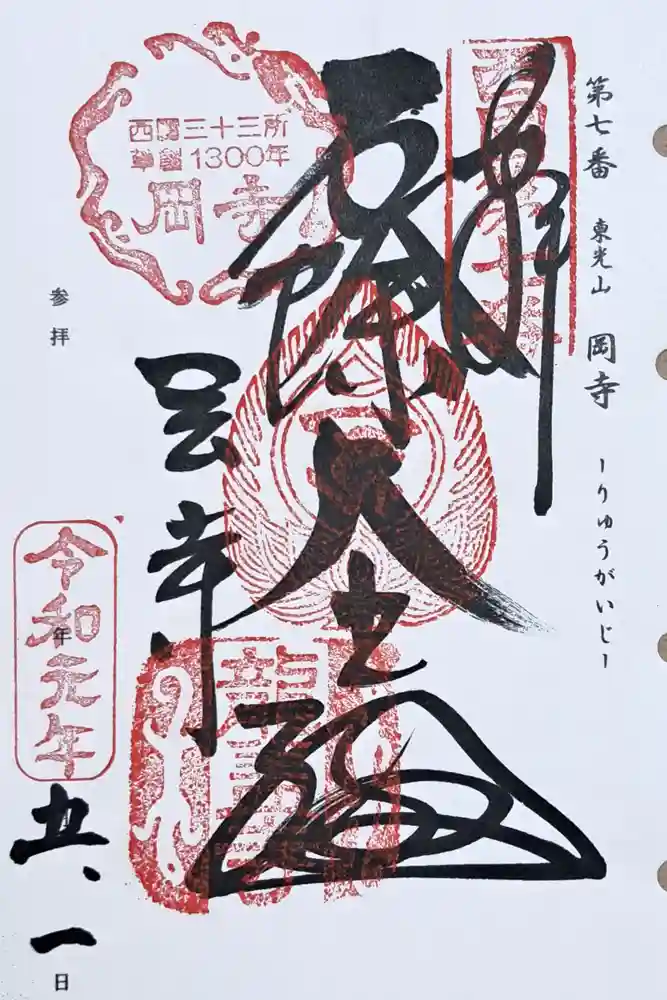 第七番 東光山 岡寺 ーりゅうがいじー
奉拝
西國三十三所
草創1300年
岡寺
岡寺
龍蓋寺
参拝
令和元年
年
五、一日